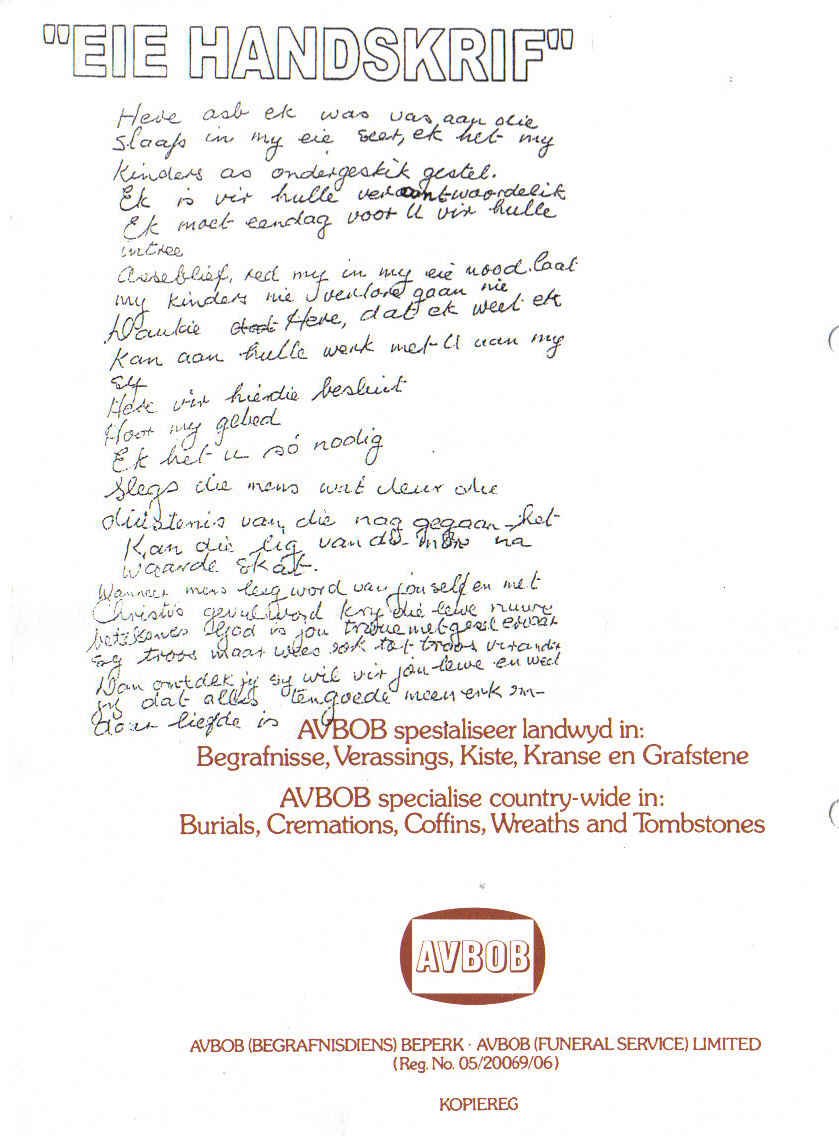 "EIE HANDSKRIF"
Here asb ek was vas aan die
slaap in my eie seer, ek het my
kinders as ondergeskik gestel.
Ek is vir hulle verantwoordelik
Ek moet eendag voor U vir hulle
intree
Asseblief, red my in my eie nood. laat
my kinders nie verlore gaan nie
Dankie Here, dat ek weet ek
kan aan hulle werk met U aan my
sy
Here vir hierdie besluit
Hoor my gebed
Ek het u só nodig
Slegs die mens wat deur die
duisternis van die nag gegaan het
Kan die lig van die môre na
waarde skat.
Wanneer mens leeg word van jouself en met
Christus gevul word kry die lewe nuwe
betekenis God is jou troue metgesel
sy troos maar wees ook tot troos
Dan ontdek jy sy wil vir jou lewe en weet
jy dat alles ten goede meewerk om-
daar liefde is
AVBOB spesialiseer landwyd in:
Begrafnisse, Verassings, Kiste, Kranse en Grafstene
AVBOB specialise country-wide in:
Burials, Cremations, Coffins, Wreaths and Tombstones
AVBOB
AVBOB (BEGRAFNISDIENS) BEPERK · AVBOB (FUNERAL SERVICE) LIMITED
(Reg. No. 05/20069/06)
KOPIEREG